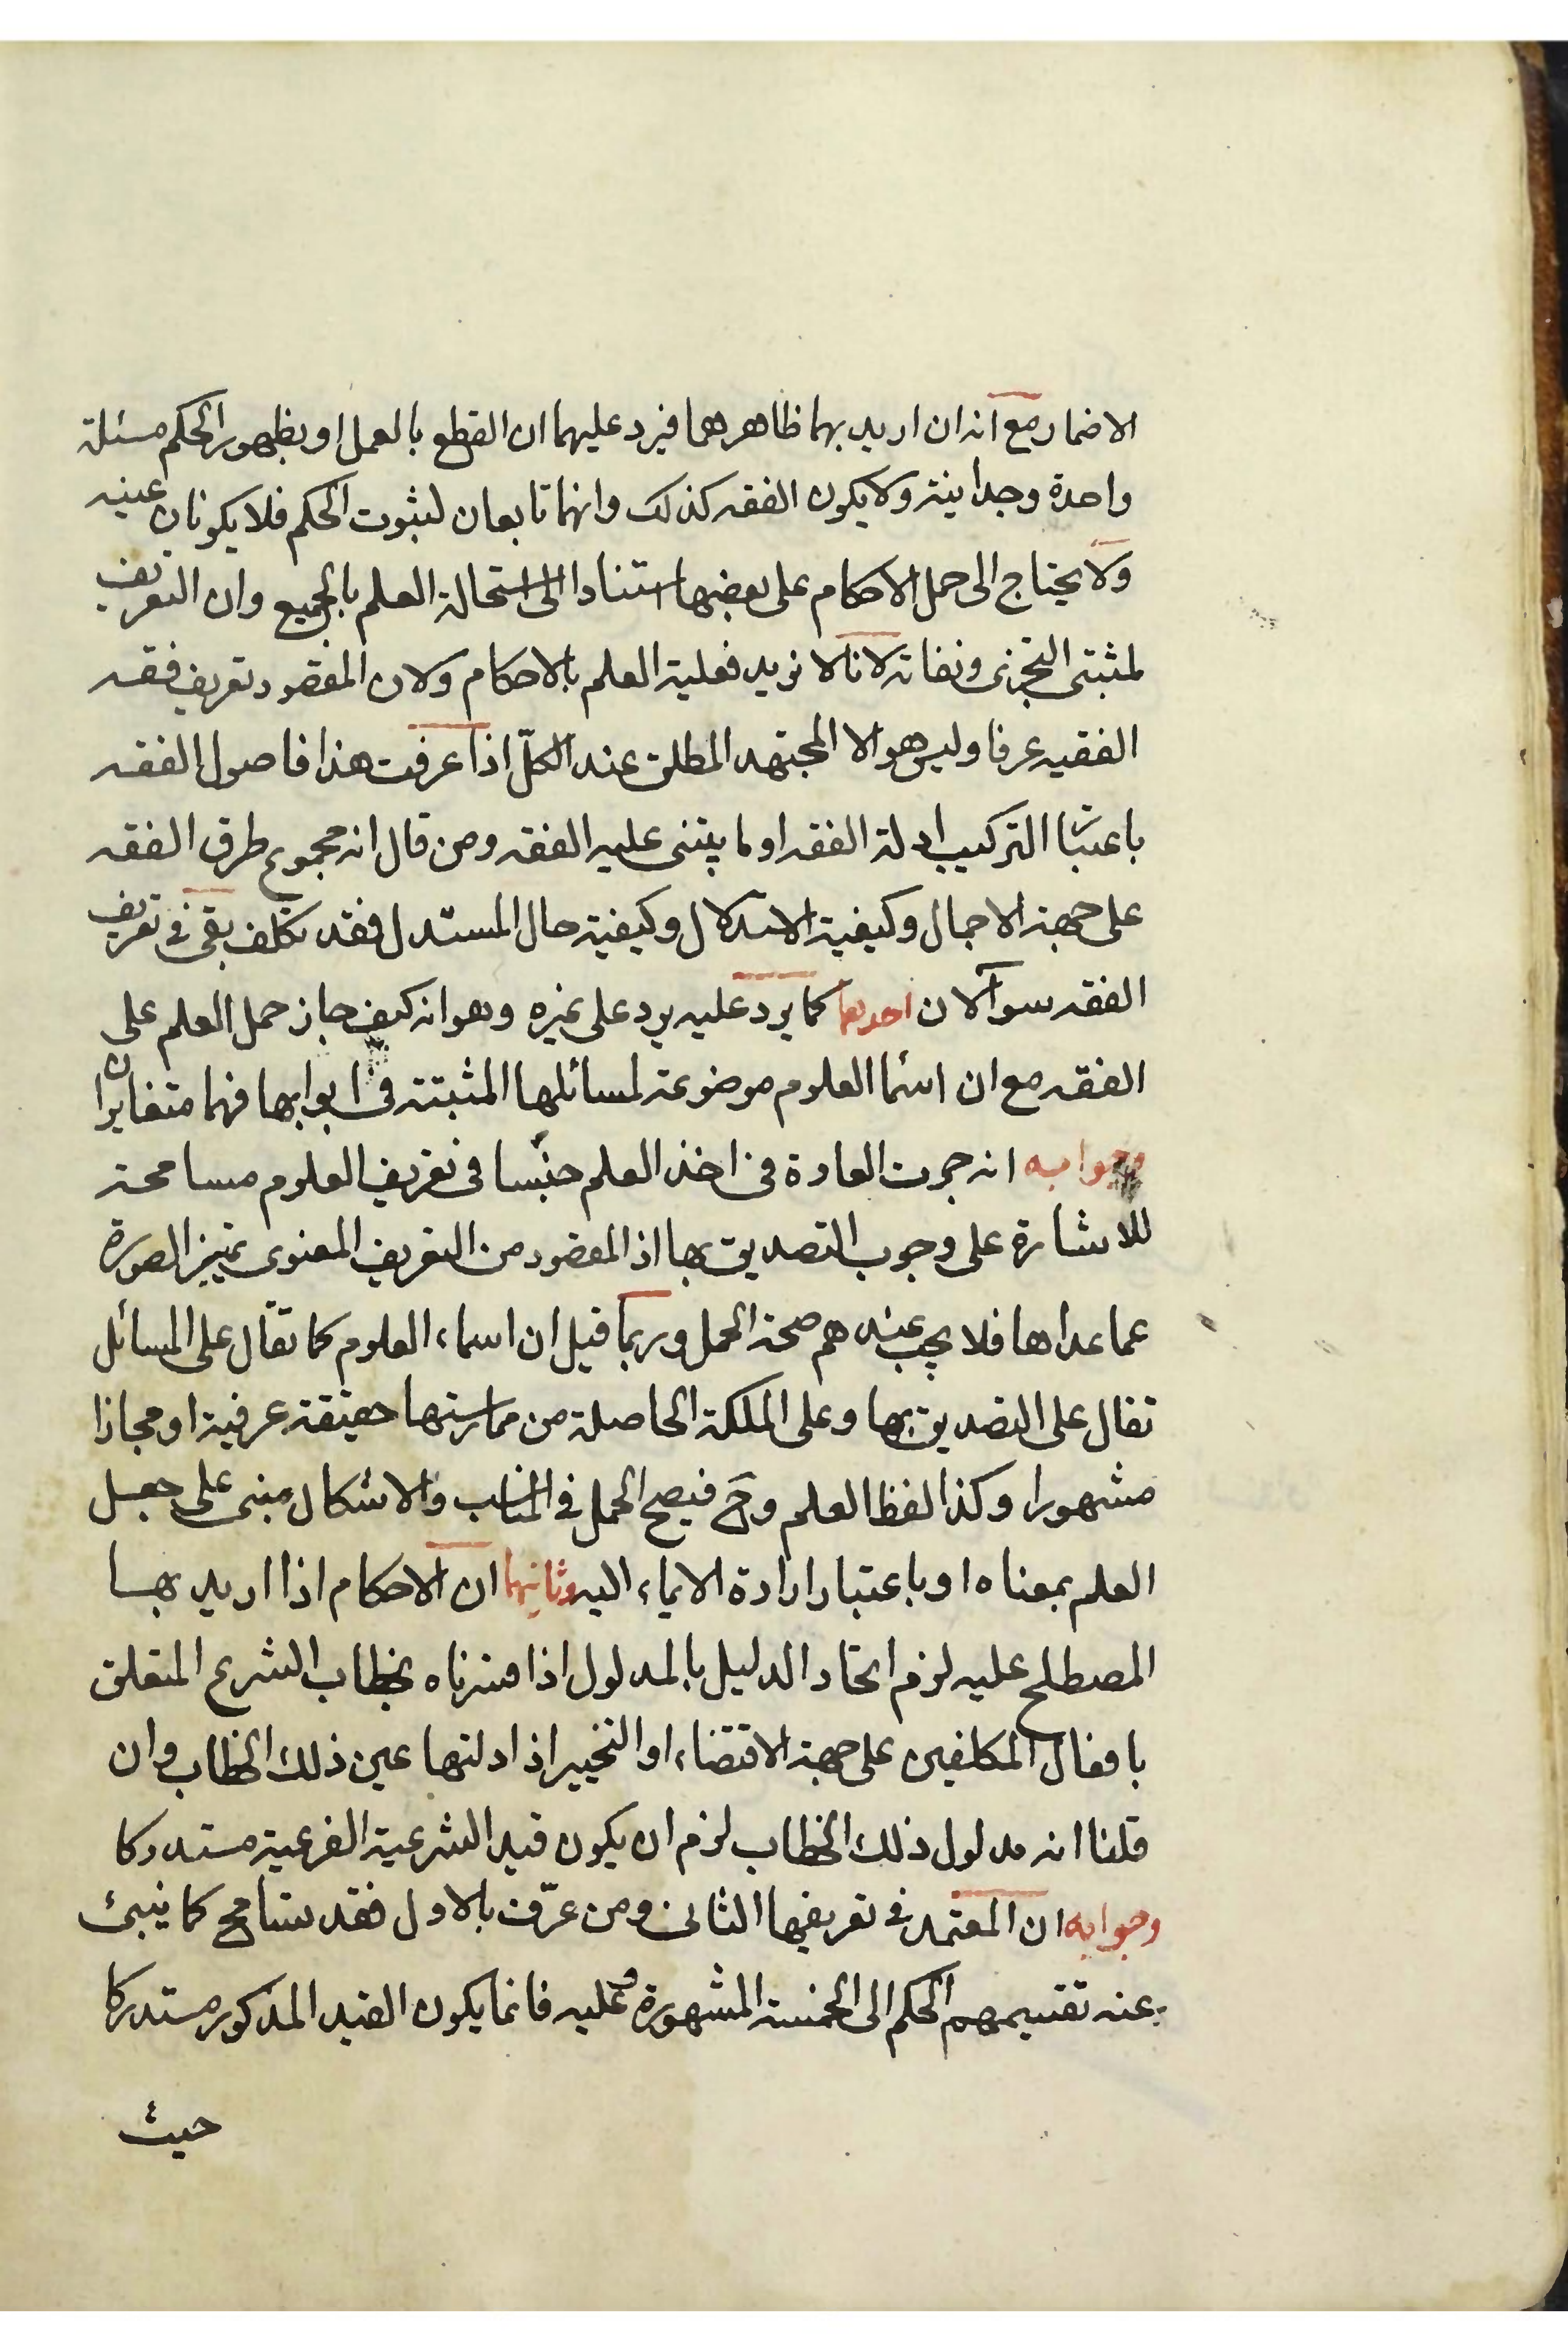 الاضمار مع انه ان اريد بهما ظاهرهما فيرد عليهما ان القطع بالعمل او بظهور الحكم مسئلة
واحدة وجدانية ولا يكون الفقه كذلك وانهما تابعان لثبوت الحكم فلا يكونان عينه
ولا يحتاج الى حمل الاحكام على بعضها استنادا الى استحالة العلم بالجميع وان التعريف
لمثبتى التجزى ونفاته لانا لا نريد فعلية العلم بالاحكام ولان المقصود تعريف فقه
الفقيه عرفا وليس هو الا المجتهد المطلق عند الكلّ اذا عرفت هذا فاصول الفقه
باعتبار التركيب ادلة الفقه او ما يبتنى عليه الفقه ومن قال انه مجموع طرق الفقه
على جهة الاجمال وكيفية الاستدلال وكيفية حال المستدل فقد تكلف بقى فى تعريف
الفقه سوآلان احدهما كما يرد عليه يرد على غيره وهو انه كيف جاز حمل العلم على
الفقه مع ان اسما العلوم موضوعة لمسائلها المثبتة فى ابوابها فهما متغايران
وجوابه انه جرت العادة فى اخذ العلم جنسا فى تعريف العلوم مسامحة
للاشارة على وجوب التصديق بها اذ المقصود من التعريف المعنوى تمييز الصورة
عما عداها فلا يجب عندهم صحة الحمل وربما قيل ان اسماء العلوم كما تقال على المسائل
تقال على التصديق بها وعلى الملكة الحاصلة من ممارستها حقيقة عرفية او مجازا
مشهورا وكذا لفظ العلم وح فيصح الحمل فى المناسب والاشكال مبنى على جعل
العلم بمعناه او باعتبار ارادة الايماء اليه وثانيهما ان الاحكام اذا اريد بها
المصطلح عليه لزم اتحاد الدليل بالمدلول اذا فسرناه بخطاب الشرع المتعلق
بافعال المكلفين على جهة الاقتضاء او التخيير اذ ادلتها عين ذلك الخطاب وان
قلنا انه مدلول ذلك الخطاب لزم ان يكون قيد الشرعية الفرعية مستدركا
وجوابه ان المعتمد فى تعريفها الثانى ومن عرّف بالاول فقد تسامح كما ينبئ
عنه تقسيمهم الحكم الى الخمسة المشهورة وعليه فانما يكون القيد المذكور مستدركا
حيث